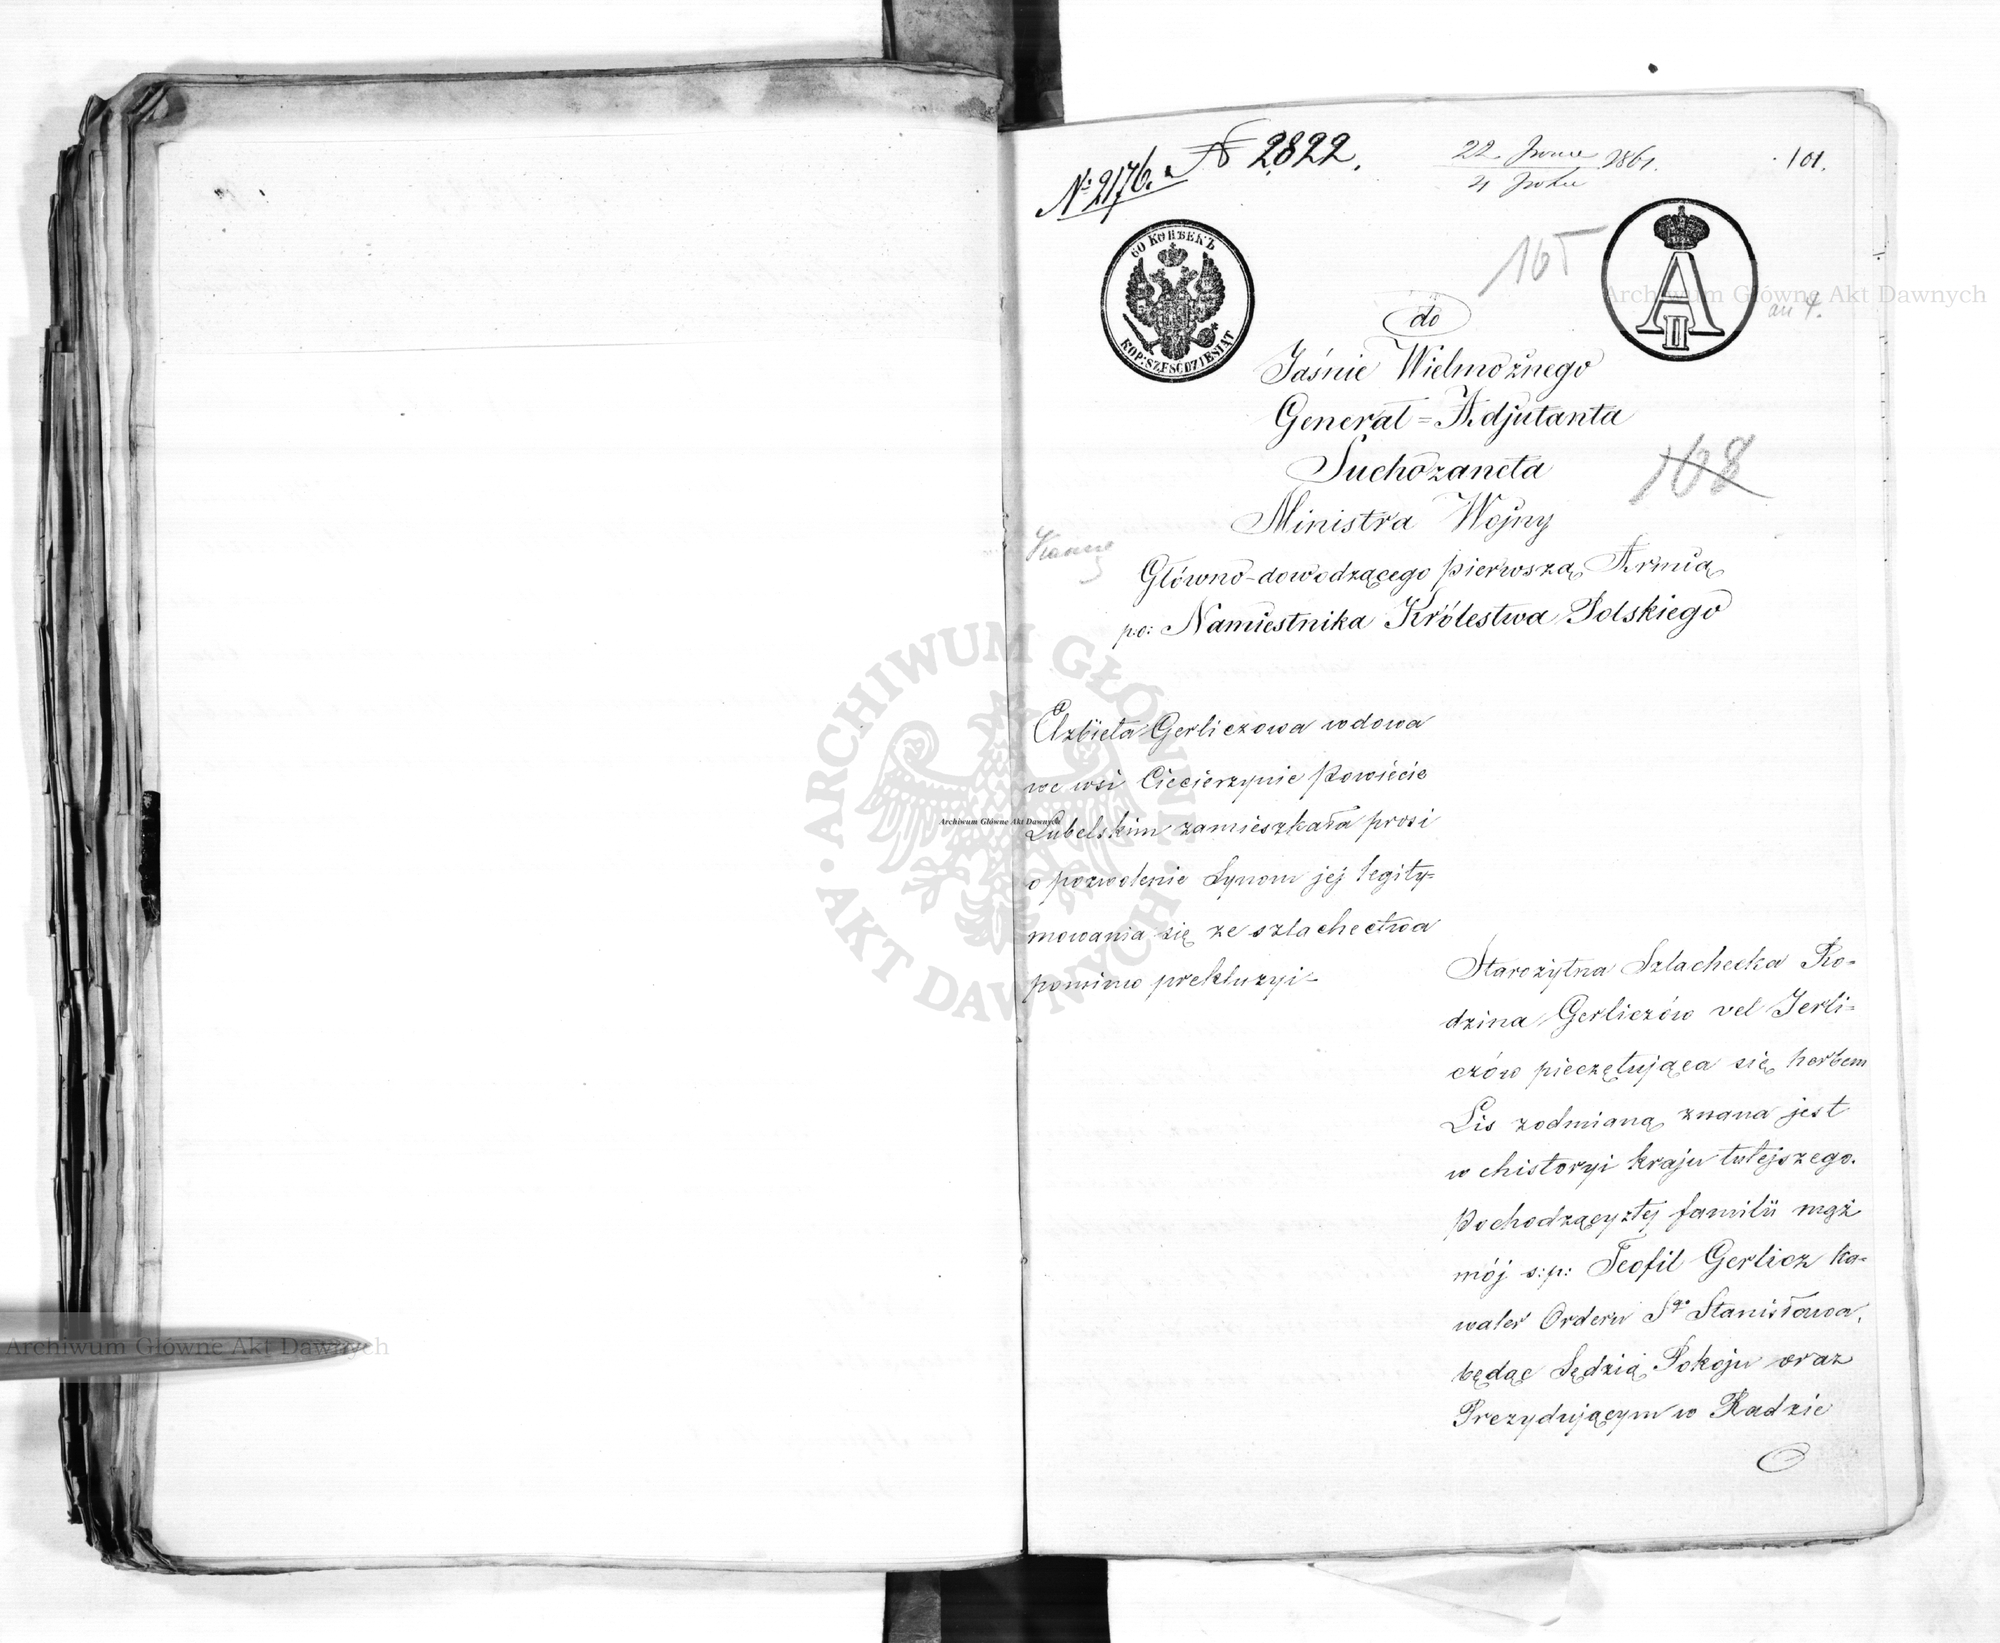 № 2176.
№ 2822.
22 1861.
4
101.
60 КОПѢЕКЪ
KOP: SZEŚĆDZIESIĄT
A
II
165
do
Jaśnie Wielmożnego
Generał=Adjutanta
Suchozaneta
168
Ministra Wojny
Główno-dowodzącego pierwszą Armią
po: Namiestnika Królestwa Polskiego
Elżbieta Gerliczowa wdowa
we wsi Ciecierzynie Powiecie
Lubelskim zamieszkała prosi
o pozwolenie Synom jej legity=
mowania się ze szlachectwa
pomimo prekluzyi-
Starożytna Szlachecka Ro-
dzina Gerliczów vel Jerli-
czów pieczętująca się herbem
Lis zodmianą znana jest
w chistoryi kraju tutejszego.
Pochodzący ztej familii mąż
mój s:p: Teofil Gerlicz Ka-
waler Orderu Sgo Stanisława,
będąc Sędzią Pokoju oraz
Prezydującym w Radzie
Archiwum Główne Akt Dawnych
Archiwum Główne Akt Dawnych
Archiwum Główne Akt Dawnych
ARCHIWUM GŁÓWNE · AKT DAWNYCH ·